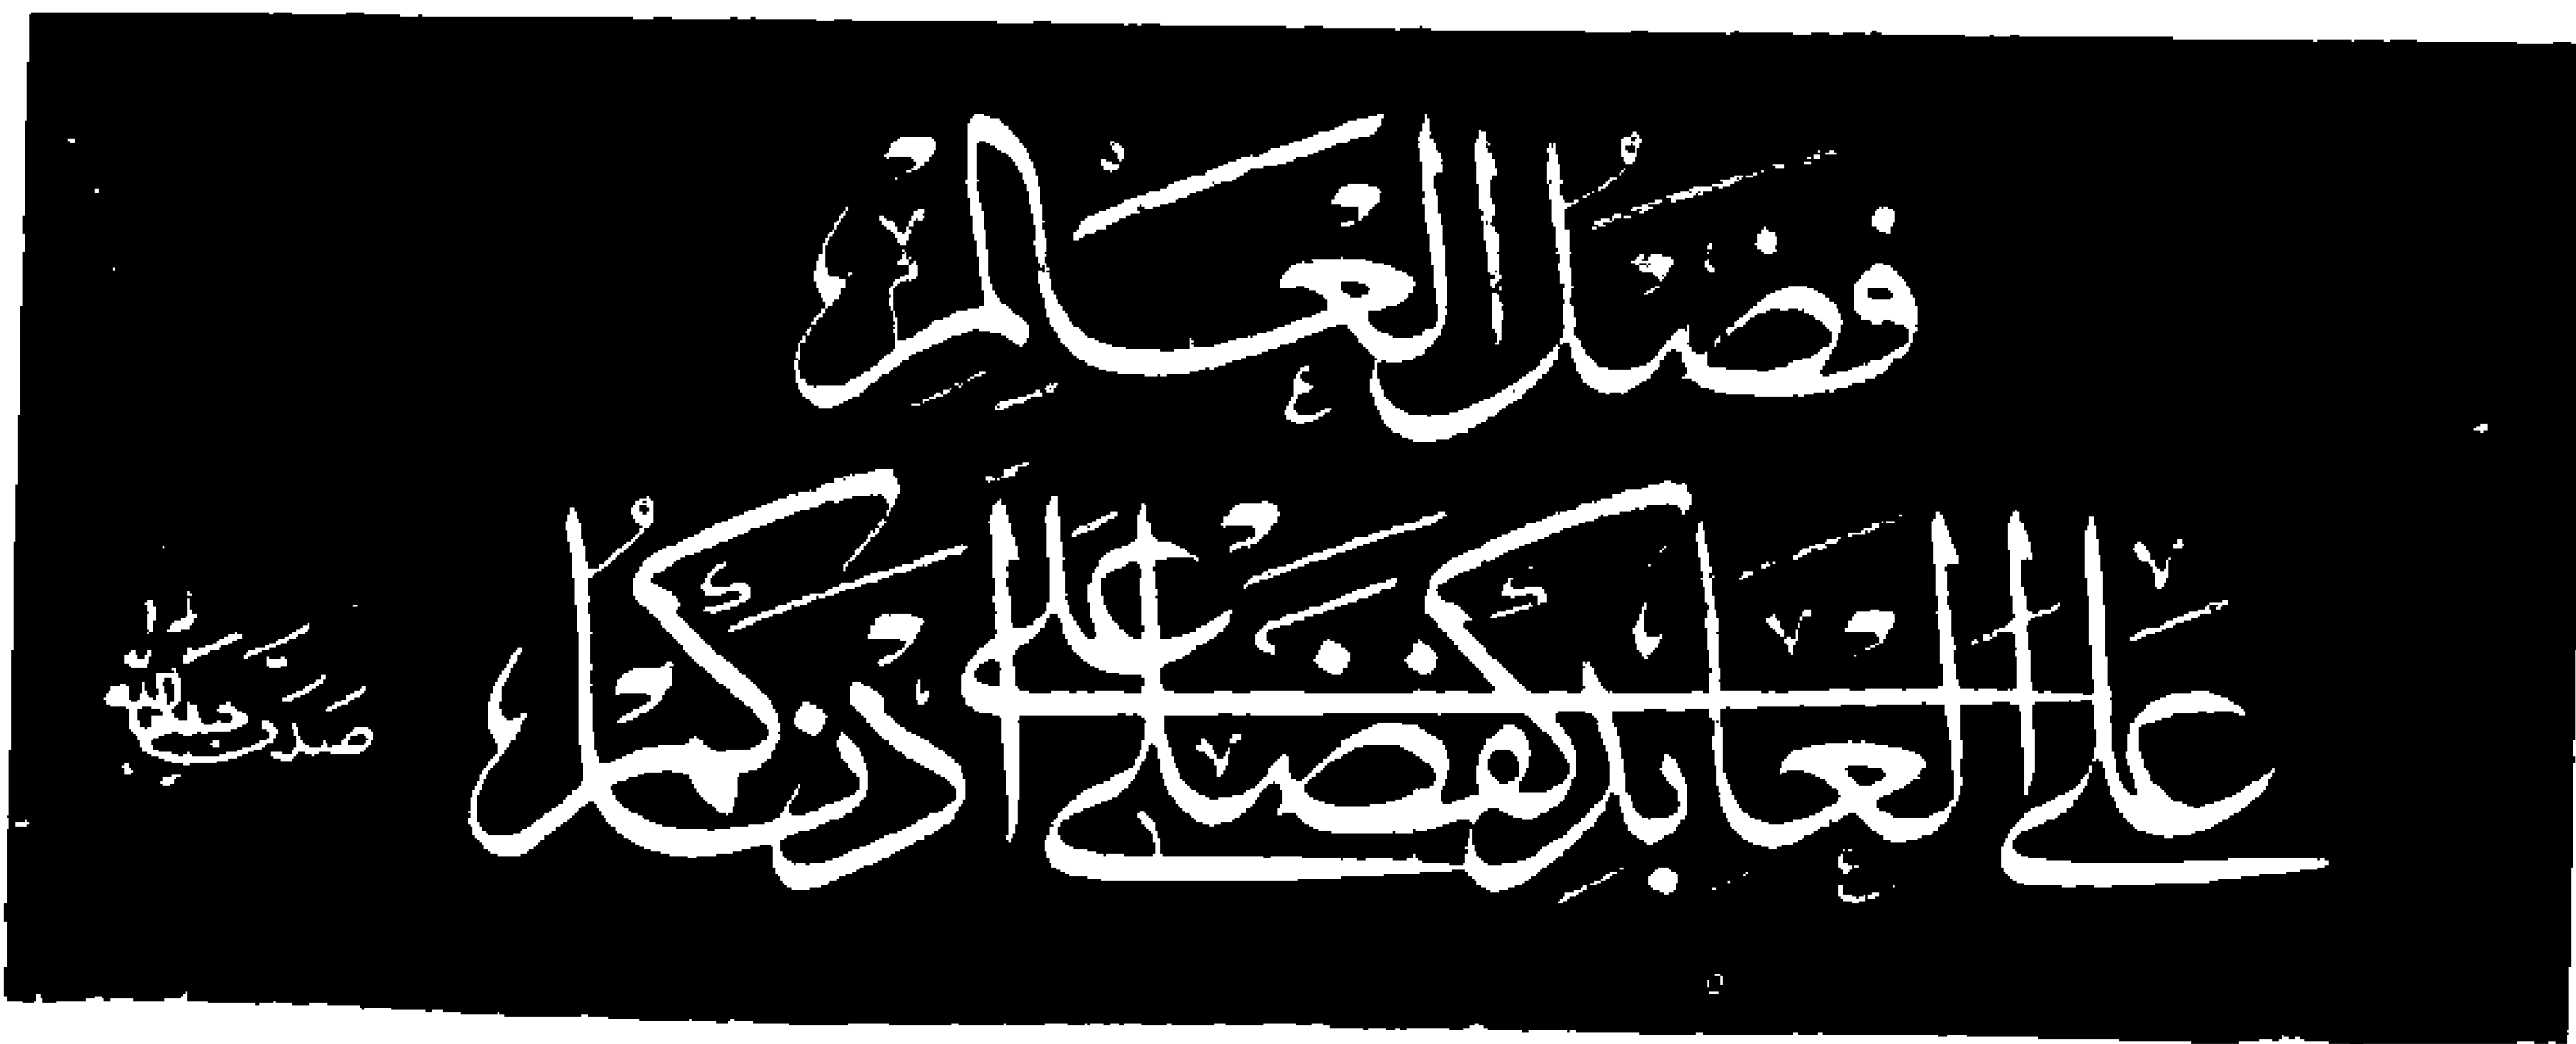 فَضْلُ الْعَالِمِ
عَلَى الْعَابِدِ كَفَضْلِي عَلَى أَدْنَاكُمْ
صدق حبيب الله